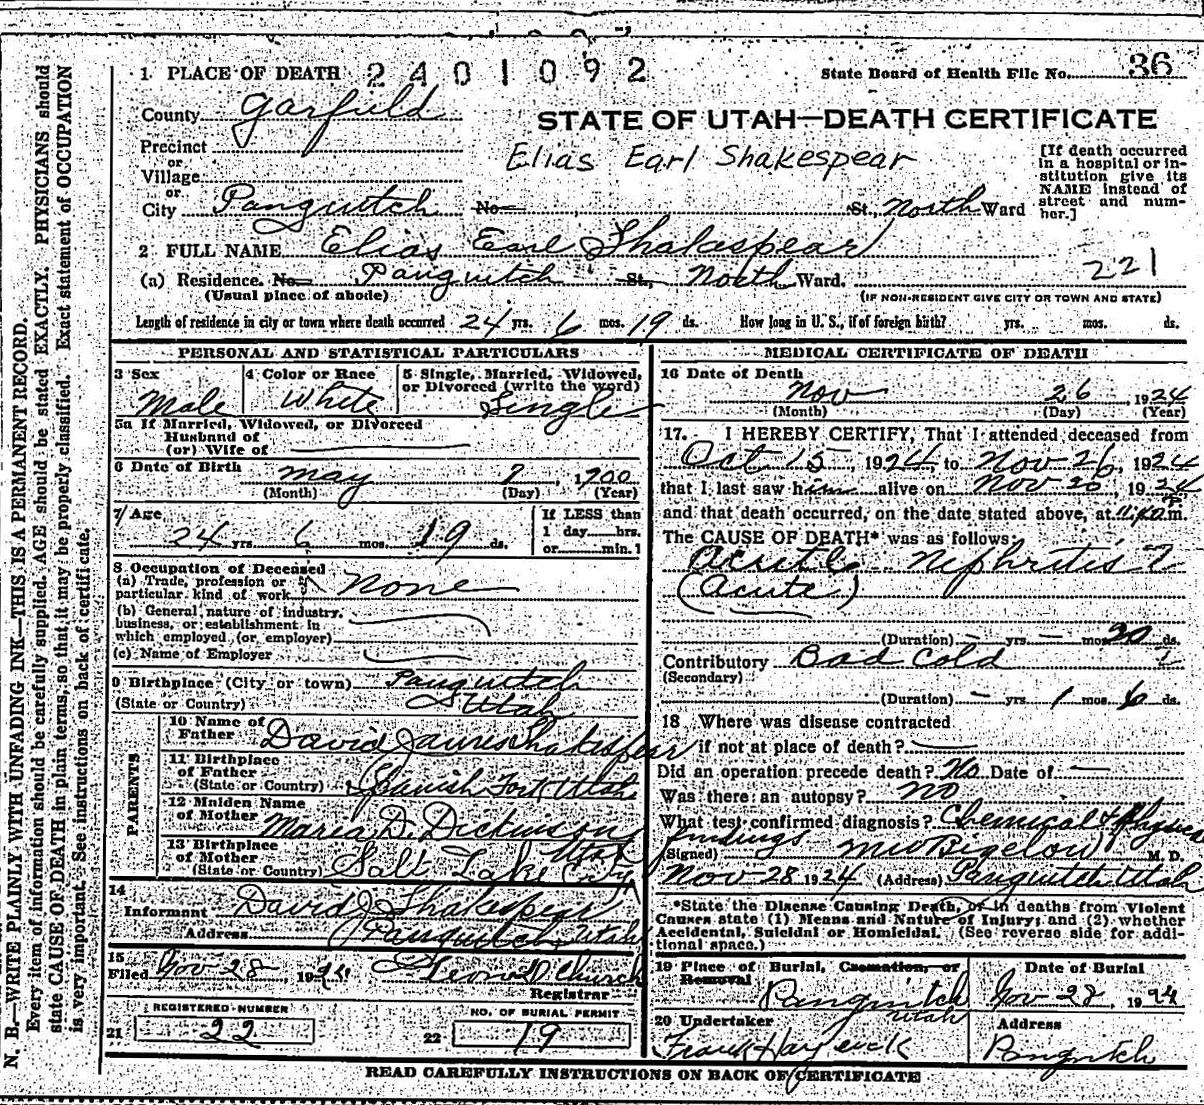 1 PLACE OF DEATH 2401092 State Board of Health File No. 36
County Garfield
STATE OF UTAH—DEATH CERTIFICATE
Precinct
or
Village
Elias Earl Shakespear
[If death occurred in a hospital or institution give its NAME instead of street and number.]
or
City Panguitch No. , St., North Ward
2 FULL NAME Elias Earl Shakespear
221
(a) Residence. No. Panguitch St., North Ward.
(Usual place of abode) (IF NON-RESIDENT GIVE CITY OR TOWN AND STATE)
Length of residence in city or town where death occurred 24 yrs. 6 mos. 19 ds. How long in U. S., if of foreign birth? yrs. mos. ds.
PERSONAL AND STATISTICAL PARTICULARS
3 Sex 4 Color or Race 5 Single, Married, Widowed, or Divorced (write the word)
Male White Single
5a If Married, Widowed, or Divorced
Husband of
(or) Wife of
6 Date of Birth May 7, 1900
(Month) (Day) (Year)
7 Age
24 yrs. 6 mos. 19 ds.
If LESS than
1 day hrs.
or min.
8 Occupation of Deceased
(a) Trade, profession or particular kind of work None
(b) General nature of industry, business, or establishment in which employed (or employer)
(c) Name of Employer
9 Birthplace (City or town) Panguitch
(State or Country) Utah
PARENTS
10 Name of Father David James Shakespear
11 Birthplace of Father (State or Country) Spanish Fork Utah
12 Maiden Name of Mother Maria D. Dickinson
13 Birthplace of Mother (State or Country) Salt Lake City Utah
14
Informant David J. Shakespear
Address Panguitch, Utah
15
Filed Nov 28, 1924 Leona D. Church
Registrar
REGISTERED NUMBER NO. OF BURIAL PERMIT
21 22 22 19
MEDICAL CERTIFICATE OF DEATH
16 Date of Death
Nov 26, 1924
(Month) (Day) (Year)
17. I HEREBY CERTIFY, That I attended deceased from
Oct 15, 1924 to Nov 26, 1924
that I last saw him alive on Nov 26, 1924
and that death occurred, on the date stated above, at m.
The CAUSE OF DEATH* was as follows:
Acute Nephritis ?
(Acute)
(Duration) — yrs. — mos. 20 ds.
Contributory Bad Cold ?
(Secondary)
(Duration) — yrs. 1 mos. 6 ds.
18 Where was disease contracted
if not at place of death?
Did an operation precede death? No Date of —
Was there an autopsy? no
What test confirmed diagnosis? Chemical & Physical
findings
(Signed) MW Bigelow M. D.
Nov 28 1924 (Address) Panguitch Utah
*State the Disease Causing Death, or in deaths from Violent Causes state (1) Means and Nature of Injury; and (2) whether Accidental, Suicidal or Homicidal. (See reverse side for additional space.)
19 Place of Burial, Cremation, or Removal Date of Burial
Panguitch Utah Nov 28 1924
20 Undertaker Address
Frank Haycock Panguitch
READ CAREFULLY INSTRUCTIONS ON BACK OF CERTIFICATE
N. B.—WRITE PLAINLY WITH UNFADING INK—THIS IS A PERMANENT RECORD.
Every item of information should be carefully supplied. AGE should be stated EXACTLY. PHYSICIANS should
state CAUSE OF DEATH in plain terms, so that it may be properly classified. Exact statement of OCCUPATION
is very important. See instructions on back of certificate.